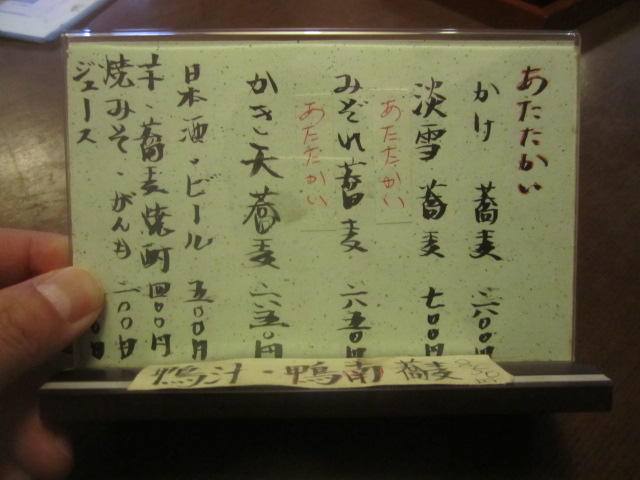 あたたかい
かけ 蕎麦 六〇〇円
淡雪 蕎麦 七〇〇円
あたたかい
みぞれ蕎麦 六五〇円
あたたかい
かき天蕎麦 六五〇円
日本酒・ビール 五〇〇円
芋・蕎麦焼酎 四〇〇円
焼みそ・がんも 二〇〇円
ジュース 〇〇円
鴨汁・鴨南蕎麦